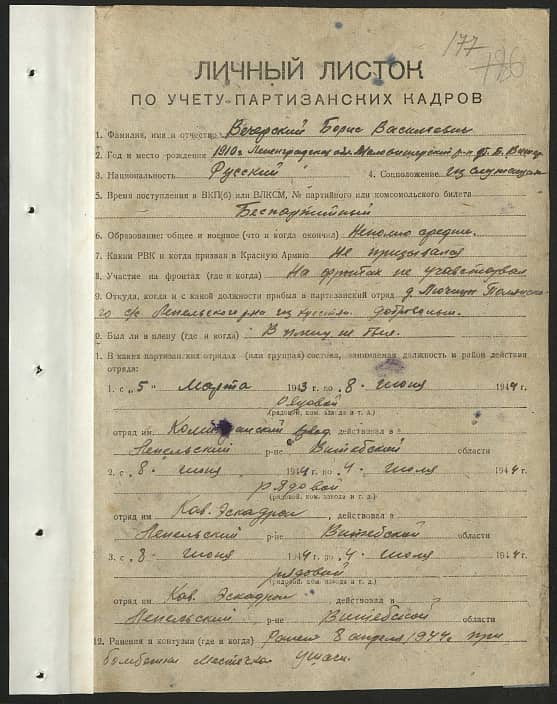 177
726
ЛИЧНЫЙ ЛИСТОК
ПО УЧЕТУ ПАРТИЗАНСКИХ КАДРОВ
1. Фамилия, имя и отчество Вечерский Борис Васильевич
2. Год и место рождения 1910г. Ленинградская обл. Маловишерский р-н
3. Национальность Русский 4. Соцположение из служащих
5. Время поступления в ВКП(б) или ВЛКСМ, № партийного или комсомольского билета
Беспартийный
6. Образование: общее и военное (что и когда окончил) Неполно средн.
7. Каким РВК и когда призван в Красную Армию Не призывался
8. Участие на фронтах (где и когда) На фронтах не участвовал
9. Откуда, когда и с какой должности прибыл в партизанский отряд д.
с/с Лепельского р-на из крестьян добровольн.
0. Был ли в плену (где и когда) В плену не был.
1. В каких партизанских отрядах (или группах) состоял, занимаемая должность и район действия
отряда:
1. с „5" Марта 1943 г. по „8" июня 1944 г.
(рядовой, ком. взвода и т. д.)
отряд им. взвод, действовал в
Лепельский р-не Витебской области
2. с „8" июня 1944 г. по „4" июля 1944 г.
рядовой
(рядовой, ком. взвода и т. д.)
отряд им Кав. Эскадрон, действовал в
Лепельский р-не Витебской области
3. с „8" июня 1944 г. по „4" июля 1944 г.
рядовой
(рядовой, ком. взвода и т. д.)
отряд им Кав. Эскадрон действовал в
Лепельский р-не Витебской области
12. Ранения и контузии (где и когда) Ранен 8 апреля 1944г. при
бомбежки местечка Ушачи.